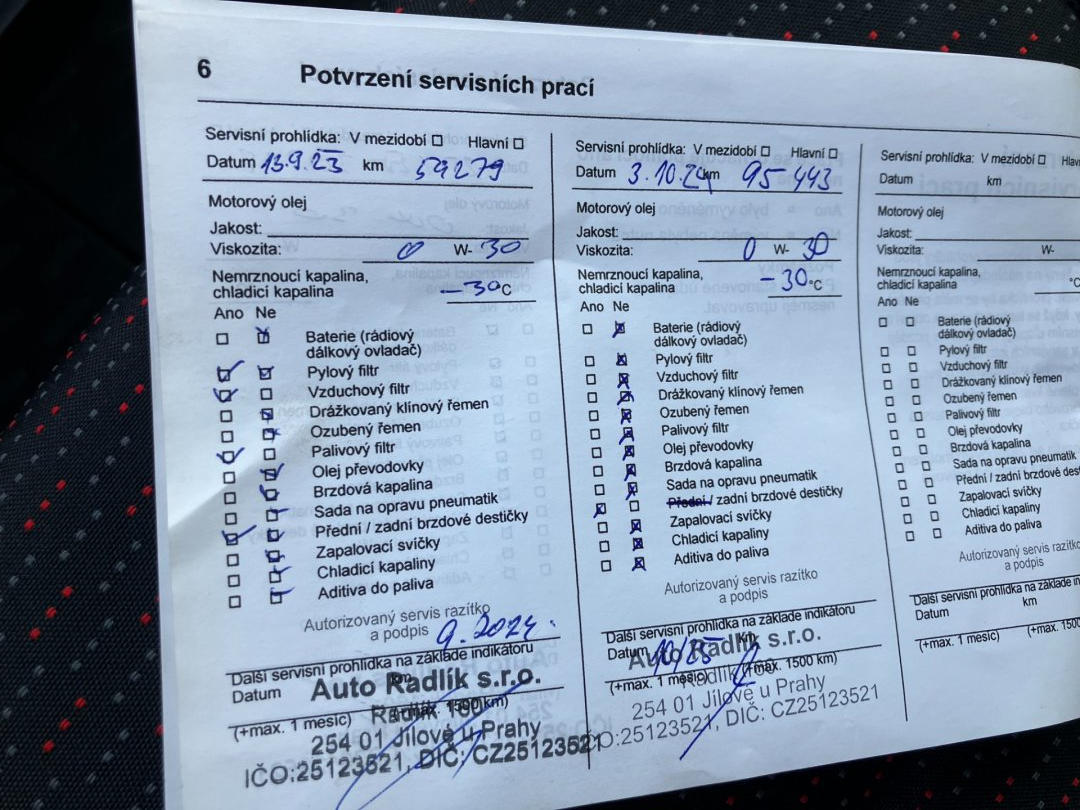 6 Potvrzení servisních prací
Servisní prohlídka: V mezidobí Hlavní
Datum 13.9.23 km 59279
Motorový olej
Jakost:
Viskozita: 0 W- 30
Nemrznoucí kapalina,
chladicí kapalina -30°C
Ano Ne
Baterie (rádiový
dálkový ovladač)
Pylový filtr
Vzduchový filtr
Drážkovaný klínový řemen
Ozubený řemen
Palivový filtr
Olej převodovky
Brzdová kapalina
Sada na opravu pneumatik
Přední / zadní brzdové destičky
Zapalovací svíčky
Chladicí kapaliny
Aditiva do paliva
Autorizovaný servis razítko
a podpis
9.2024.
Další servisní prohlídka na základě indikátoru
Datum km
(+max. 1 mesíc) (+max. 1500 km)
Auto Radlík s.r.o.
Radlík 100
254 01 Jílové u Prahy
IČO:25123521, DIČ: CZ25123521
Servisní prohlídka: V mezidobí Hlavní
Datum 3.10.24 km 95443
Motorový olej
Jakost:
Viskozita: 0 W- 30
Nemrznoucí kapalina,
chladicí kapalina -30°C
Ano Ne
Baterie (rádiový
dálkový ovladač)
Pylový filtr
Vzduchový filtr
Drážkovaný klínový řemen
Ozubený řemen
Palivový filtr
Olej převodovky
Brzdová kapalina
Sada na opravu pneumatik
Přední / zadní brzdové destičky
Zapalovací svíčky
Chladicí kapaliny
Aditiva do paliva
Autorizovaný servis razítko
a podpis
Další servisní prohlídka na základě indikátoru
Datum 10/25 km
(+max. 1 mesíc) (+max. 1500 km)
Auto Radlík s.r.o.
Radlík
254 01 Jílové u Prahy
IČO:25123521, DIČ: CZ25123521
Servisní prohlídka: V mezidobí
Datum km
Motorový olej
Jakost:
Viskozita: W-
Nemrznoucí kapalina,
chladicí kapalina °C
Ano Ne
Baterie (rádiový
dálkový ovladač)
Pylový filtr
Vzduchový filtr
Drážkovaný klínový řemen
Ozubený řemen
Palivový filtr
Olej převodovky
Brzdová kapalina
Sada na opravu pneumatik
Přední / zadní brzdové
Zapalovací svíčky
Chladicí kapaliny
Aditiva do paliva
Autorizovaný servis
a podpis
Další servisní prohlídka na základě
Datum km
(+max. 1 mesíc) (+max. 1500